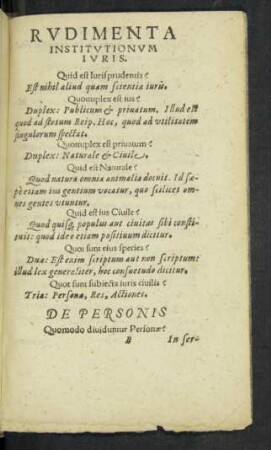 RVDIMENTA
INSTITVTIONVM
IVRIS.
Quid est Iurisprudentia?
Est nihil aliud quam scientia iuris.
Quotuplex est ius?
Duplex: Publicum & priuatum. Illud est
quod ad statum Reip. Hoc, quod ad vtilitatem
singulorum spectat.
Quotuplex est priuatum?
Duplex: Naturale & Ciuile.
Quid est Naturale?
Quod natura omnia animalia docuit. Id sæ-
pè etiam ius gentium vocatur, quo scilicet om-
nes gentes vtuntur.
Quid est ius Ciuile?
Quod quisq; populus aut ciuitas sibi consti-
tuit: quod ideo etiam positiuum dicitur.
Quot sunt eius species?
Duæ: Est enim scriptum aut non scriptum:
illud lex generaliter, hoc consuetudo dicitur.
Quot sunt subiecta iuris ciuilis?
Tria: Personæ, Res, Actiones.
DE PERSONIS
Quomodo diuiduntur Personæ?
B In ser-